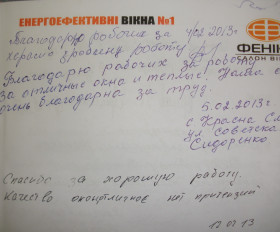 ЕНЕРГОЕФЕКТИВНІ ВІКНА №1
ФЕНІК
САЛОН ВІК
Благодарю рабочих за
хорошо работу
Благодарю рабочих за работу
За отличные окна и теплые.
очень благодарна за труд.
5.02.2013г
с Красна
ул Советска
Сидоренко
Спасибо за хорошую работу.
Качество отличное нет притензий
12 02 13